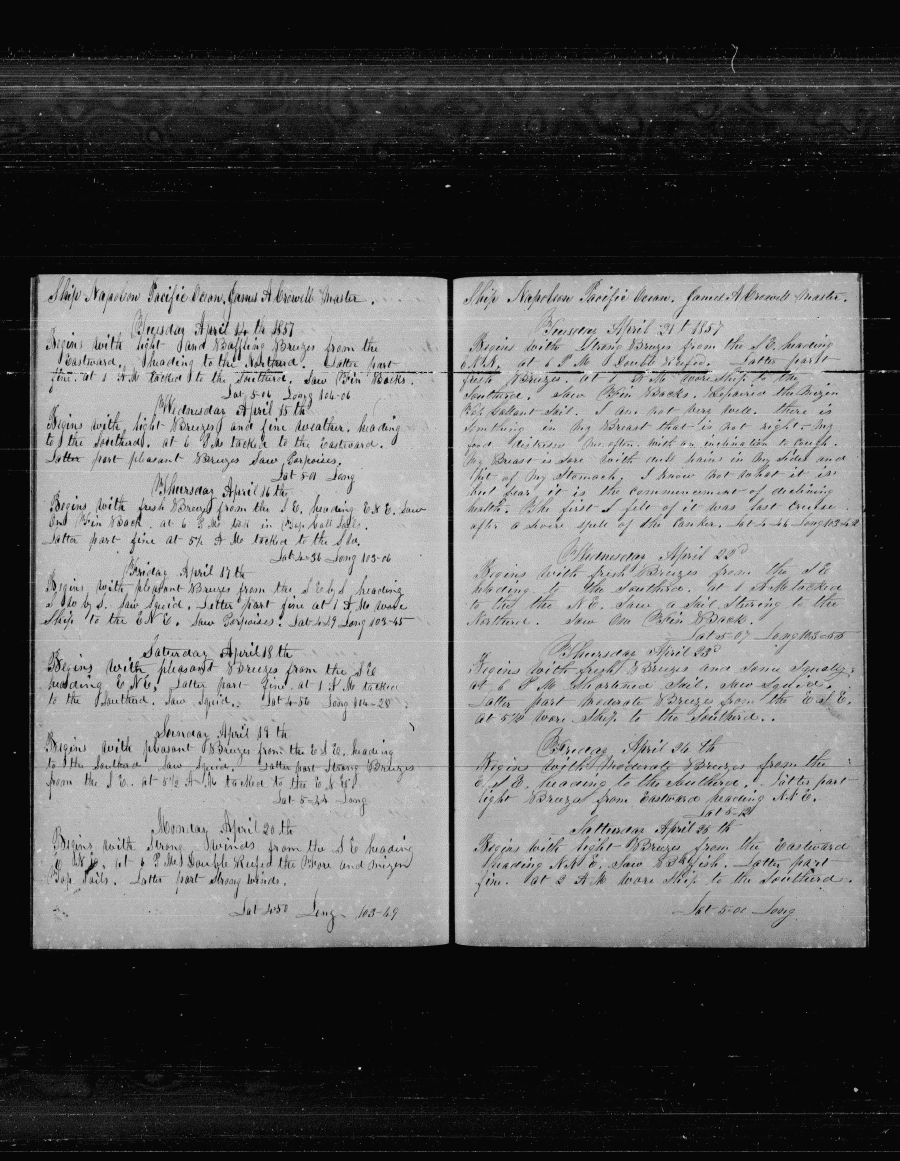 Ship Napoleon Pacific Ocean, James A Crowell Master.
Tuesday April 14th 1857
Begins with light and Baffling Breezes from the
Eastward, heading to the Northard. Latter part
fine. at 1 A M tacked to the Southerd. Saw Fin Backs.
Lat 5-06 Long 104-06
Wednesday April 15th
Begins with light Breezes and fine weather. heading
to the Southerd. at 6 P M tacked to the Eastward.
Latter part pleasant Breezes Saw Porpoises.
Lat 5-01 Long
Thursday April 16th
Begins with fresh Breezes from the S E. heading E N E. Saw
one Fin Back. at 6 P M took in Top Gall Sails.
Latter part fine at 5½ A M tacked to the Sd.
Lat 4-36 Long 103-06
Friday April 17th
Begins with pleasant Breezes from the S E by S heading
S W by S. Saw Squid. Latter part fine at 1 A M wore
Ship to the E N E. Saw Porpoises. Lat 4-49 Long 103-45
Saturday April 18th
Begins with pleasant Breezes from the S E
heading E N E. Latter part fine. at 1 A M tacked
to the Southerd. Saw Squid. Lat 4-56 Long 104-28
Sunday April 19th
Begins with pleasant Breezes from the E S E. heading
to the Southerd Saw Squid. Latter part Strong Breezes
from the S E. at 5½ A M tacked to the E N E.
Lat 5-44 Long
Monday April 20th
Begins with Strong winds from the S E heading
E N E. at 6 P M Double Reefed the Fore and mizen
Top Sails. Latter part Strong winds.
Lat 4-50 Long 103-49
Ship Napoleon Pacific Ocean. James A Crowell Master.
Tuesday April 21t 1857
Begins with Strong Breezes from the S E heading
E N E. at 6 P M Double Reefed. Latter part
fresh Breezes. at 1 A M wore Ship to the
Southerd. Saw Fin Backs. Repaired the Mizen
Top Gallant Sail. I am not very well. there is
something in my Breast that is not right - my
food distress me often. with an inclination to Cough.
My Breast is Sore with dull pains in my Sides and
Pit of my Stomach. I know not what it is
but fear it is the commencement of declining
health. The first I felt of it was last cruise
after a Severe spell of the Canker. Lat 4-44 Long 103-42
Wednesday April 22d
Begins with fresh Breezes from the S E
heading to the Southerd. at 1 A M tacked
to the N E. Saw a Sail Stering to the
Northerd. Saw One Fin Back.
Lat 5-07 Long 103-55
Thursday April 23d
Begins with fresh Breezes and Some Squaly.
at 6 P M Shortened Sail. Saw Squid.
Latter part moderate Breezes from the E S E.
at 5½ wore Ship to the Southerd.
Friday April 24th
Begins with Moderate Breezes from the
E S E. heading to the Southerd. Latter part
light Breezes from Eastward heading N N E.
Lat 5-12
Satturday April 25th
Begins with light Breezes from the Eastward
heading N N E. Saw Blkfish. Latter part
fine. at 2 A M wore Ship to the Southerd.
Lat 5-00 Long